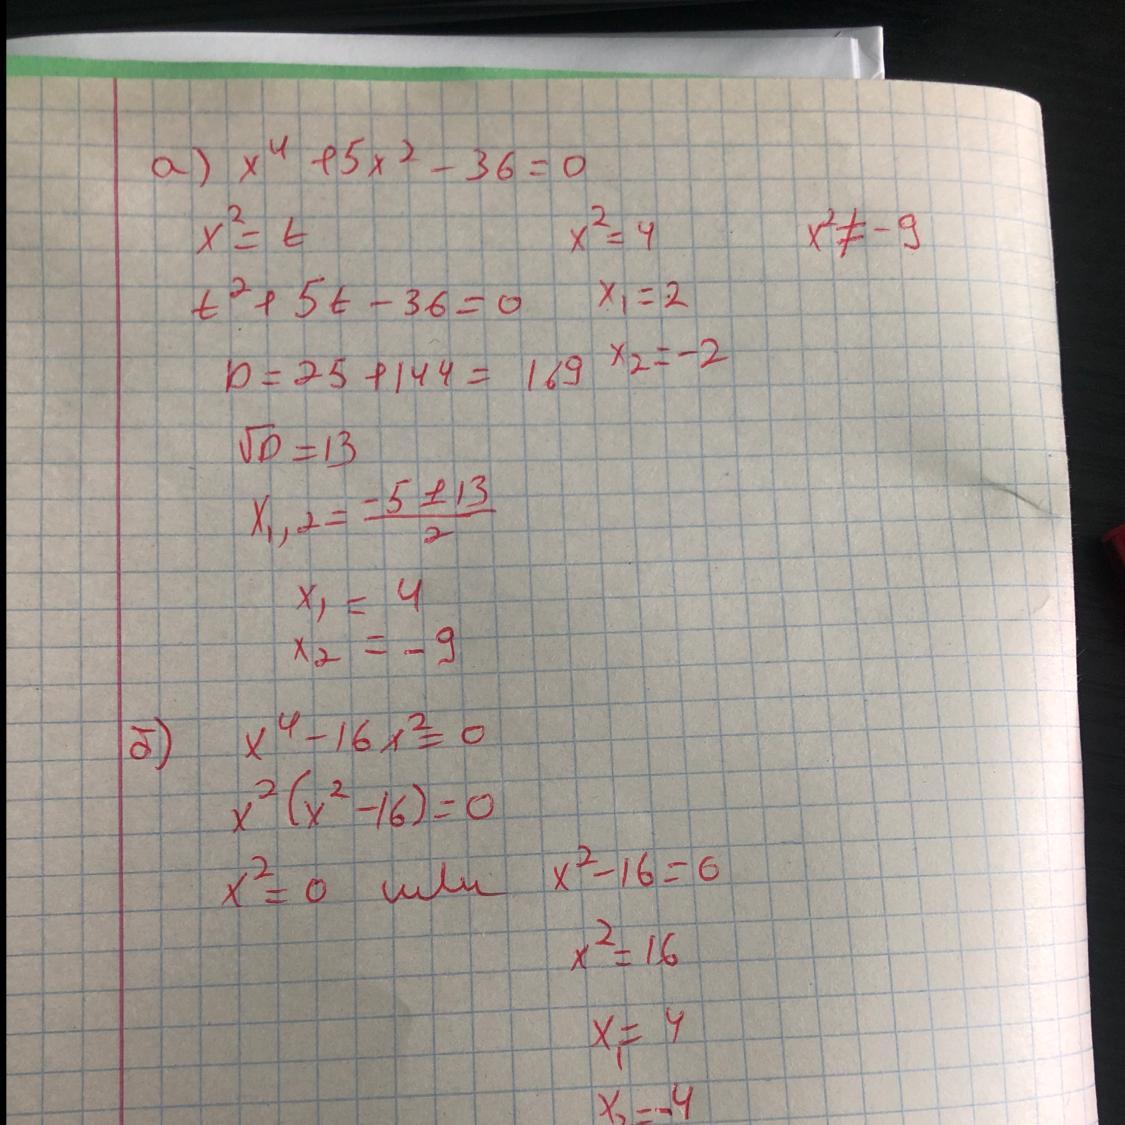 а) x⁴ + 5x² - 36 = 0
x² = t
x² = 4
x² ≠ -9
t² + 5t - 36 = 0
x₁ = 2
D = 25 + 144 = 169
x₂ = -2
√D = 13
x₁,₂ = (-5 ± 13)/2
x₁ = 4
x₂ = -9
б) x⁴ - 16x² = 0
x² (x² - 16) = 0
x² = 0 или x² - 16 = 0
x² = 16
x₁ = 4
x₂ = -4